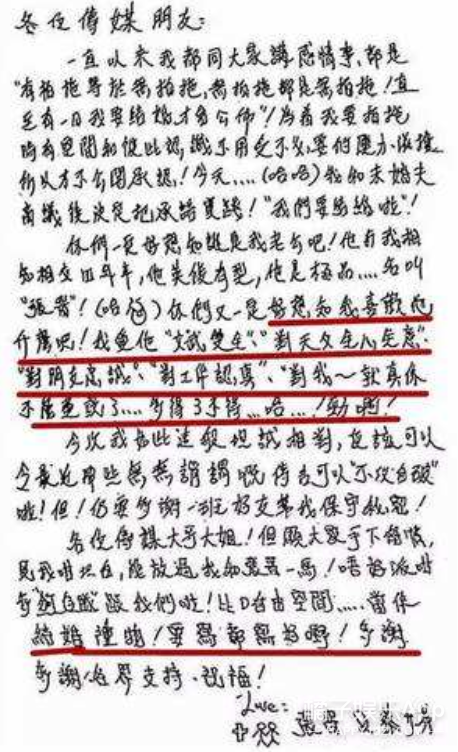 各位傳媒朋友:
一直以來我都同大家講感情事,都是
"有拍拖等於無拍拖,無拍拖都是無拍拖!直
至有一日我要結婚才會公佈"!為着我要拍拖
時有空間和彼此認識不用受不必要的壓力
所以才不公開承認!今天....(哈哈)我和未婚夫
商議後決定把承諾實踐!"我們要結婚啦"!
你們一定好想知誰是我老公吧!他和我相
知相交四年半,他英俊有型,他是極品....名叫
"張晉"!(哈哈)你們又一定好想知我喜歡他
什麼吧!我鍾意他"文武雙全"、"對天父全心全意"、
"對朋友忠誠"、"對工作認真"、"對我~就真係
不能盡數了....多得3不得...哈...!勁啊!
今次我如此達般坦誠相對,應該可以
令最近那些無無謂謂嘅傳言可以"不攻自破"
啦!但!仍要多謝一班好友替我保守秘密!
各位傳媒大哥大姐!但願大家手下留情,
見我咁坦白,放過我和張晉一馬!唔好派咁
多跟我們啦!比D自由空間.....當係
結婚禮物!要寫都寫好嘢!多謝
多謝!各界支持、祝福!
Love:
張晉 蔡少芬